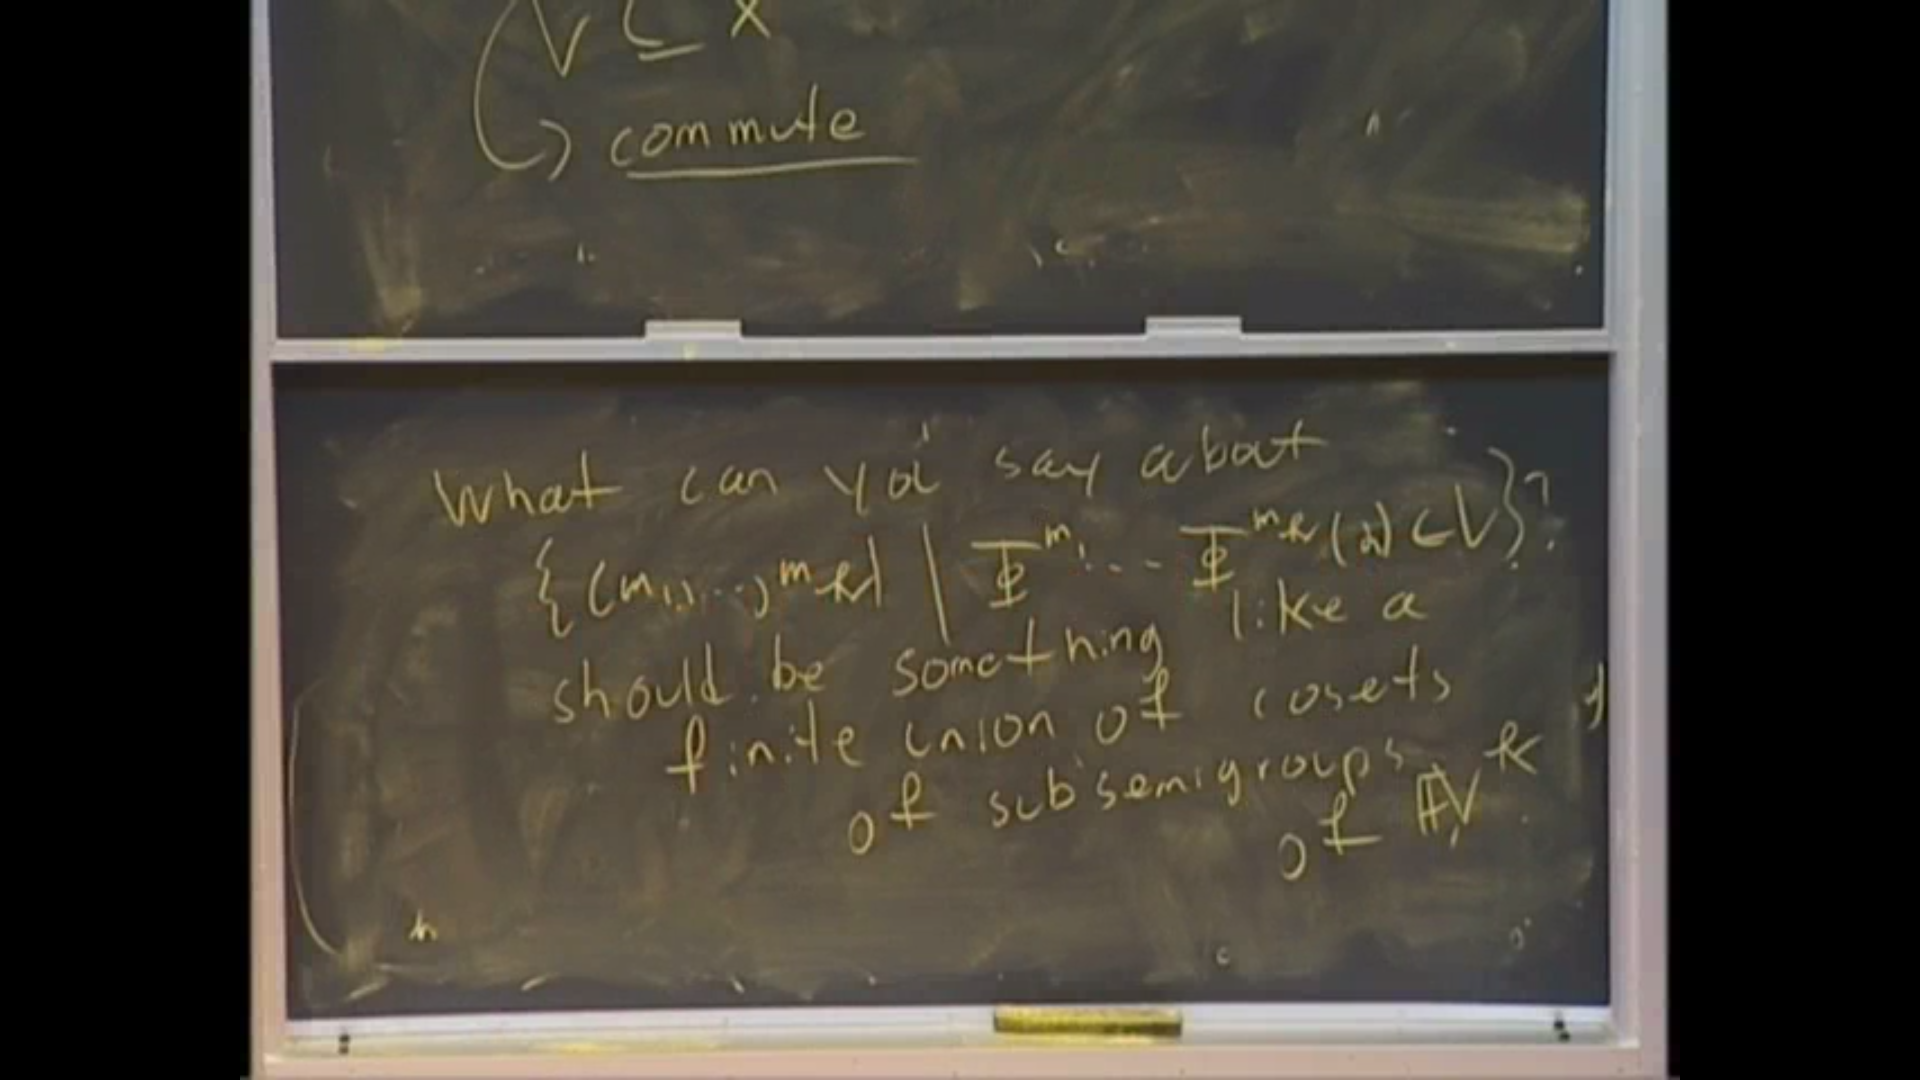 V ⊆ X
commute
What can you say about
{(m₁,...,m_k) | Φ^m₁ ... Φ^m_k (α) ⊂ V}?
should be something like a
finite union of cosets
of subsemigroups
of ℕ^k